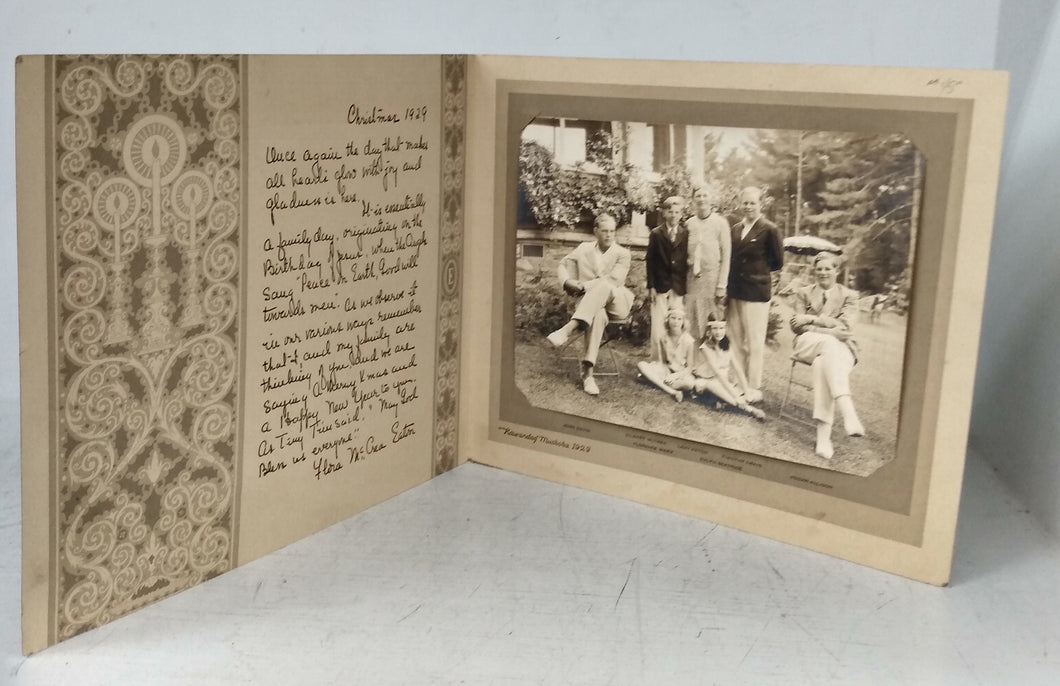 Christmas 1929
Once again the day that makes
all hearts glow with joy and
gladness is here.
It is essentially
a family day, originating on the
Birthday of Jesus, when the Angels
Sang "Peace on Earth, Goodwill
towards men. As we observe it
in our various ways remember
that I, and my family are
thinking of you and we are
saying A Merry Xmas and
a Happy New Year to you.
As Tiny Tim said, "May God
Bless us everyone".
Flora McCrea Eaton
E
Kawandag Muskoka 1929
JOHN DAVID
GILBERT MCCREA
LADY EATON
TIMOTHY CRAIG
FLORENCE MARY
EVLYN BEATRICE
EDGAR ALLISON